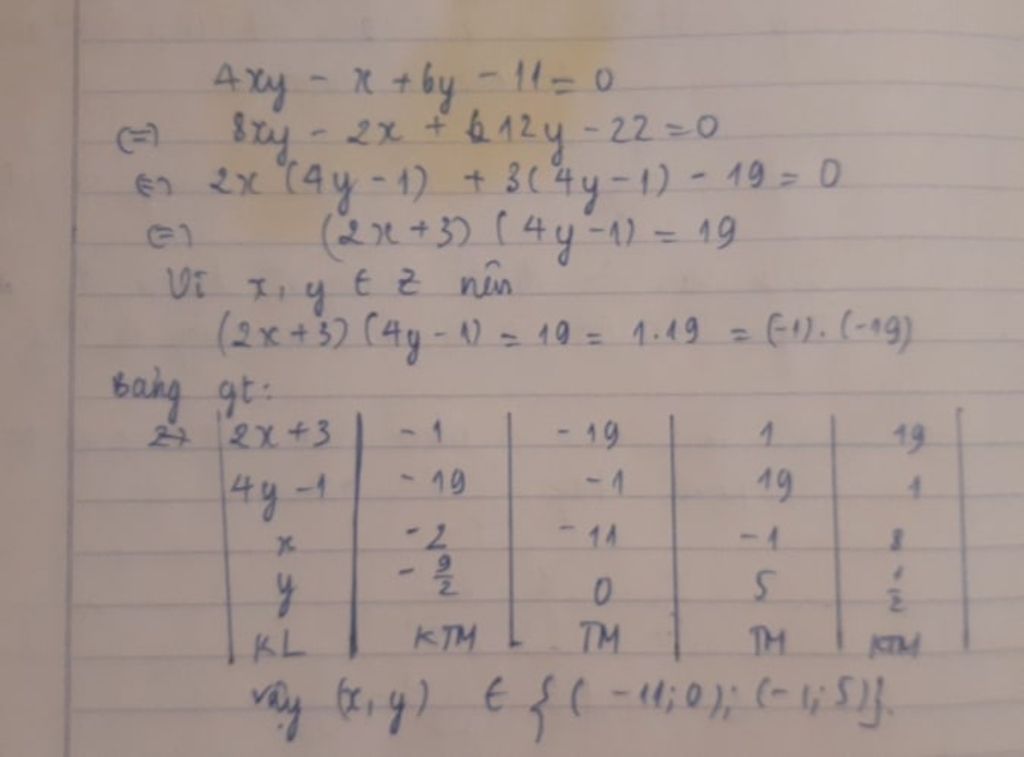 4xy - x + 6y - 11 = 0
(=) 8xy - 2x + 12y - 22 = 0
(=) 2x (4y - 1) + 3(4y - 1) - 19 = 0
(=) (2x + 3) (4y - 1) = 19
Vì x, y ∈ Z nên
(2x + 3) (4y - 1) = 19 = 1.19 = (-1).(-19)
Bảng gt:
2x + 3 | -1 | -19 | 1 | 19
4y - 1 | -19 | -1 | 19 | 1
x | -2 | -11 | -1 | 8
y | -9/2 | 0 | 5 | 1/2
KL | KTM | TM | TM | KTM
vậy (x, y) ∈ { ( -11; 0); (-1; 5)}.